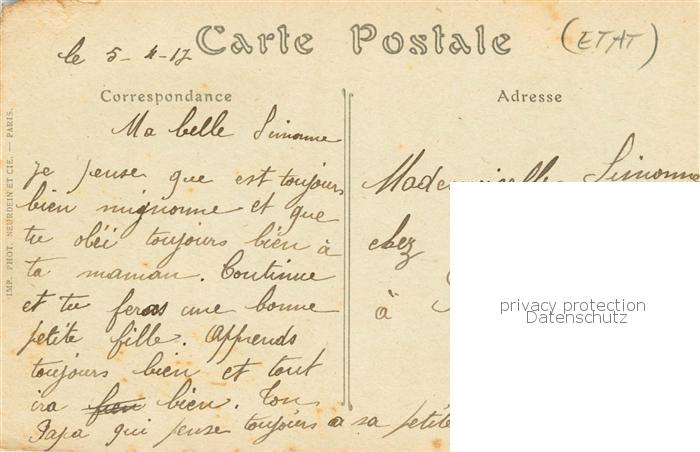 le 5-4-17
Carte Postale
(ETAT)
Correspondance
Adresse
Ma belle Simonne
je pense que est toujours
bien mignonne et que
tu obéi toujours bien à
ta maman. Continue
et tu feras une bonne
petite fille. Apprends
toujours bien et tout
ira bien. Ton
Papa qui pense toujours a sa petite
Mademoiselle Simonne
chez
à
privacy protection
Datenschutz
IMP. PHOT. NEURDEIN ET CIE. — PARIS.